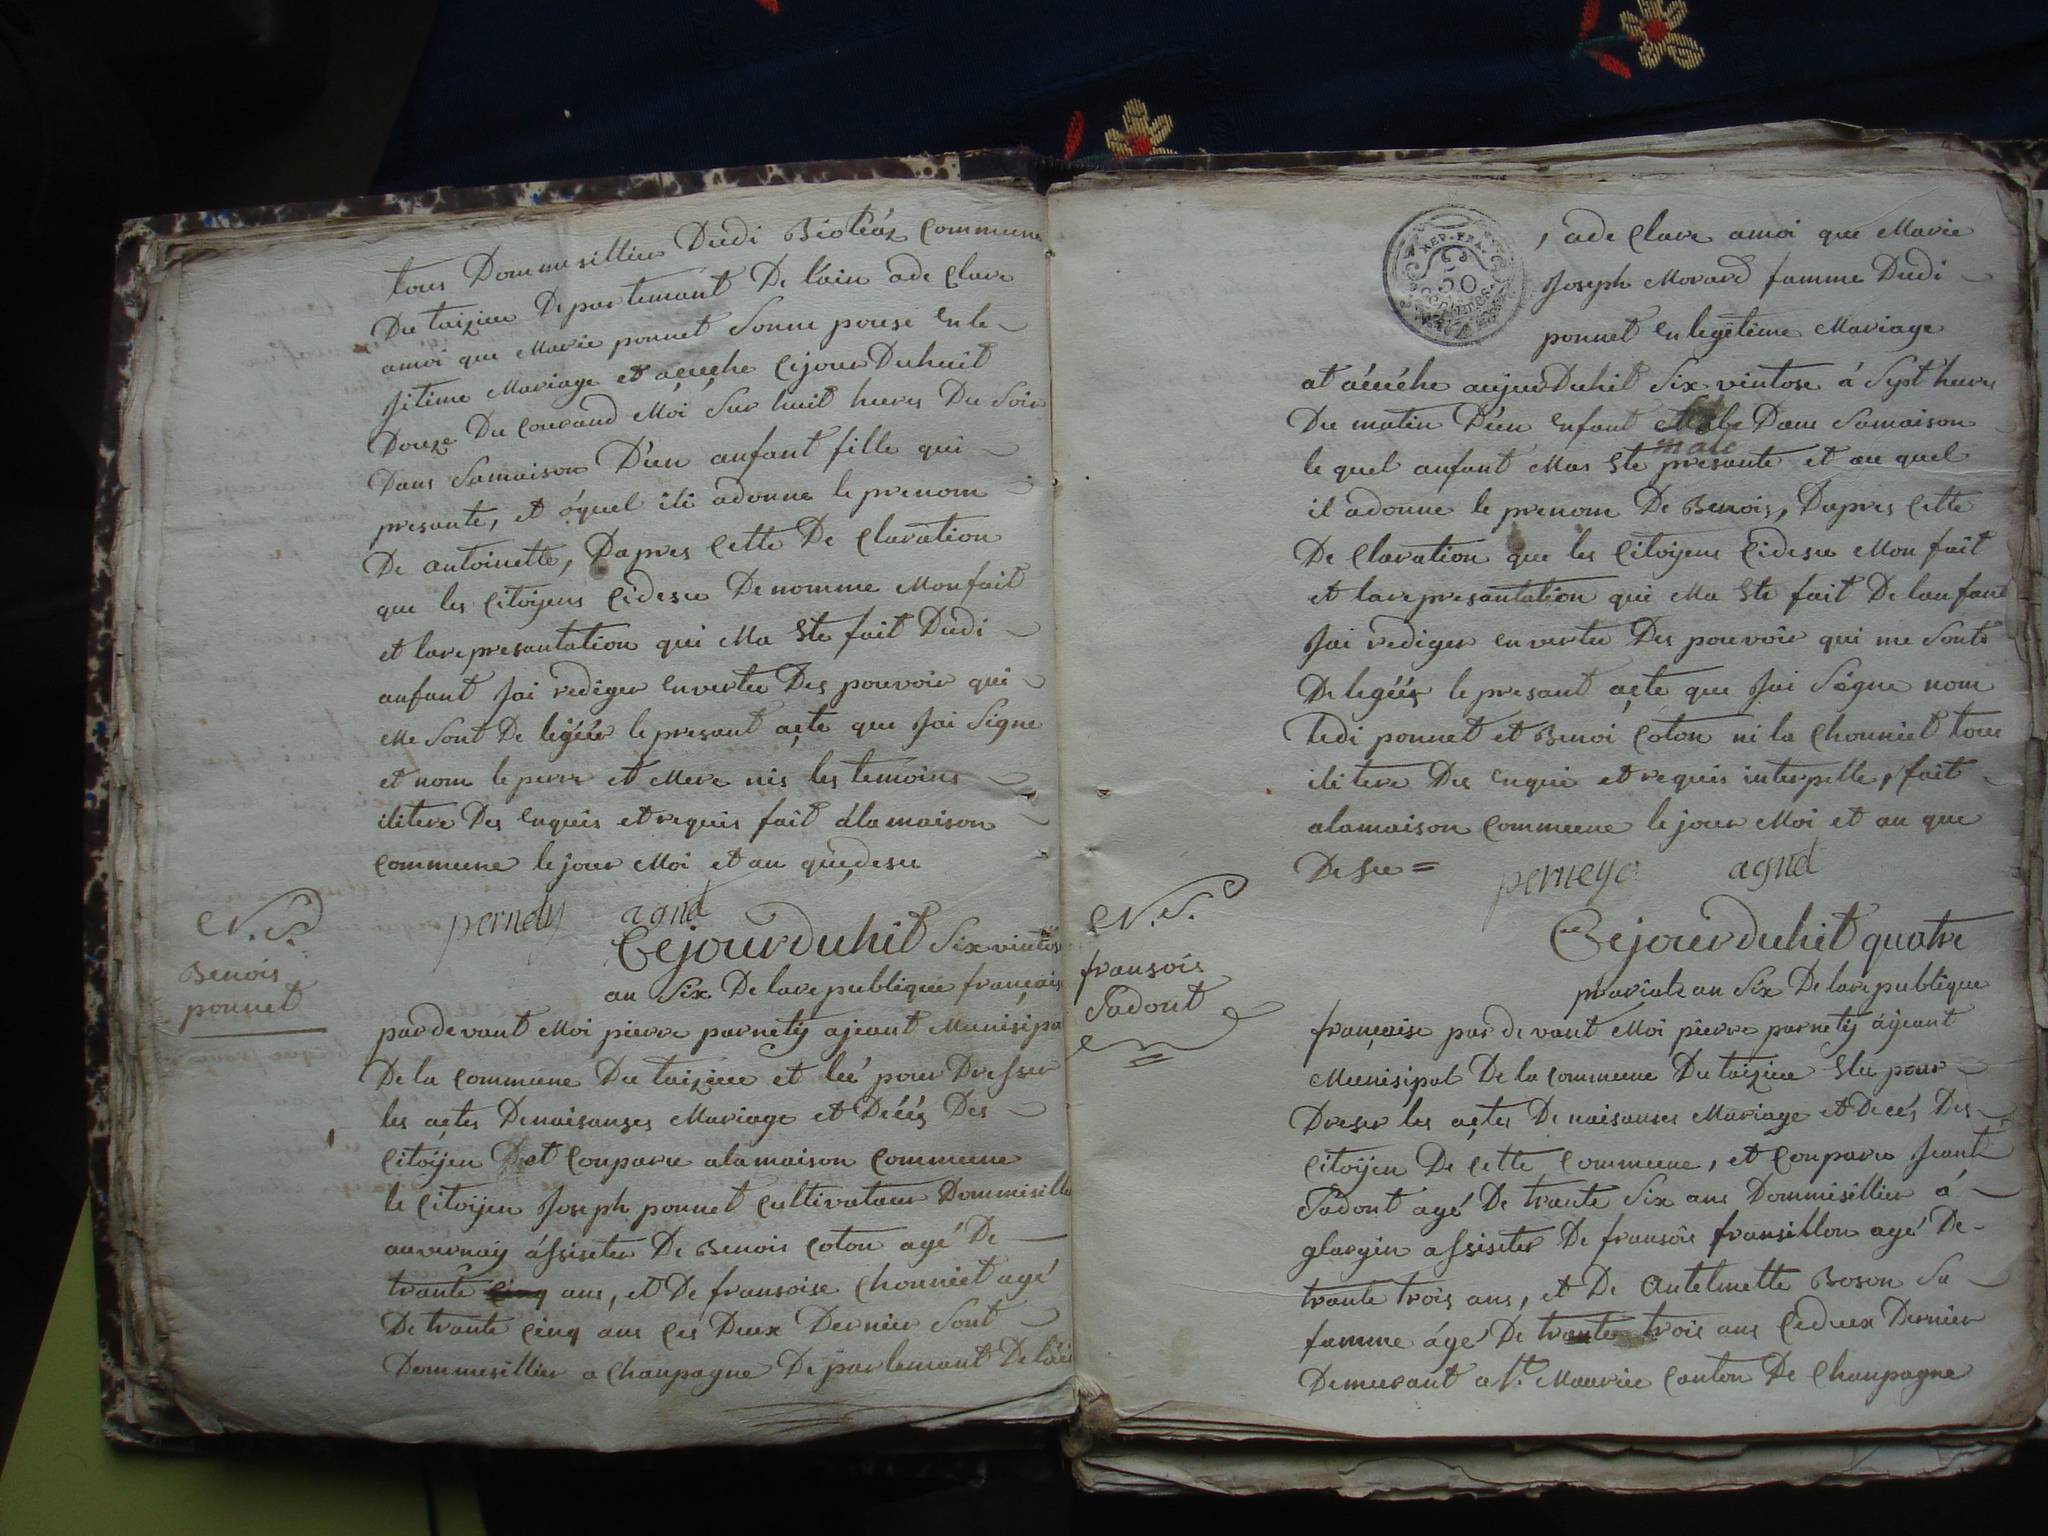 tous Dommisillier Dudi Bioléaz Commune
Du taizieu Departemant De lain ade Clare
amoi que Marie ponnet Sonne pouse en le
Jitime Mariage et acuche Cijour Duhuit
Douze Du Courand Moi Sur huit heures Du Soir
Dans Samaison D'un anfant fille qui
presante, et óquel ili adonne le prenom
De antoinette, Dapres Cette De Claration
que les Citoyens Cidesu Denomme Monfait
et lare presantation qui Ma Ete fait Dudi
anfant Jai rediger envertu Des pouvoir qui
Me Sont De légéér le presant acte que Jai Signe
et nom le perre et Mere nis les temoins
ilitere Des enquis et requis fait álamaison
Commune le jour Moi et an quedesu
pernety agnd
N. S.
Benois
ponnet
Cejourduhit Six vintose
an Six De lare publique française
pardevant Moi pierre parnety ajeant Munisipa
De la Commune Du taizieu et lü pour Dresser
les actes Denaisanses Mariage et Décés Des
Citoyen et Conparu alamaison Commune
le Citoyen Joseph ponnet Cultivatieu Dommisillie
auvernay assisetes De Benois Coton agé De
trante cinq ans, et De fransoise Chonniet agé
De trante cinq ans Ces Deux Dernier Sont
Dommisillier a Chanpagne Departemant De lain
REP. FRA.
50
centimes.
, ade Clare amoi que Marie
Joseph Morard famme Dudi
ponnet en legetime Mariage
at acuche aujourDuhit Six vintose á Sept heures
Du matin D'un enfant Male Dans Samaison
male
le quel anfant Mas Ete presante et au quel
il adonne le prenom De Benois, Dapres Cette
De Claration que les Citoyens Cidesu Mon fait
et lare presantation qui Ma Ete fait De lanfant
Jai rediger envertu Des pouvoir qui me Sonts
De legéér le presant acte que Jai Signe nom
ledi ponnet et Benoi Coton ni la Chonniet tous
ilitere Des enquis et requis interpelle, fait
alamaison Commune le jour Moi et an que
De su = perneye agnd
N. S.
fransois
Padout
Cejourduhit quatre
prarial an Six De lare publique
française pardevant Moi pierre parnety ájeant
Munisipal De la Commune Du taizieu Elu pour
Dreser les actes De naisanses Mariage et Decés Des
Citoyen De Cette Commune, et Conparu Jeant
Padout agé De trante Six ans Dommisillier á
glargin assisetes De fransois fransillon agé De
trante trois ans, et De Antelmette Boson Sa
famme ágé De trante trois ans Cedeux Dernier
Demeurant a St. Maurice Canton De Chanpagne